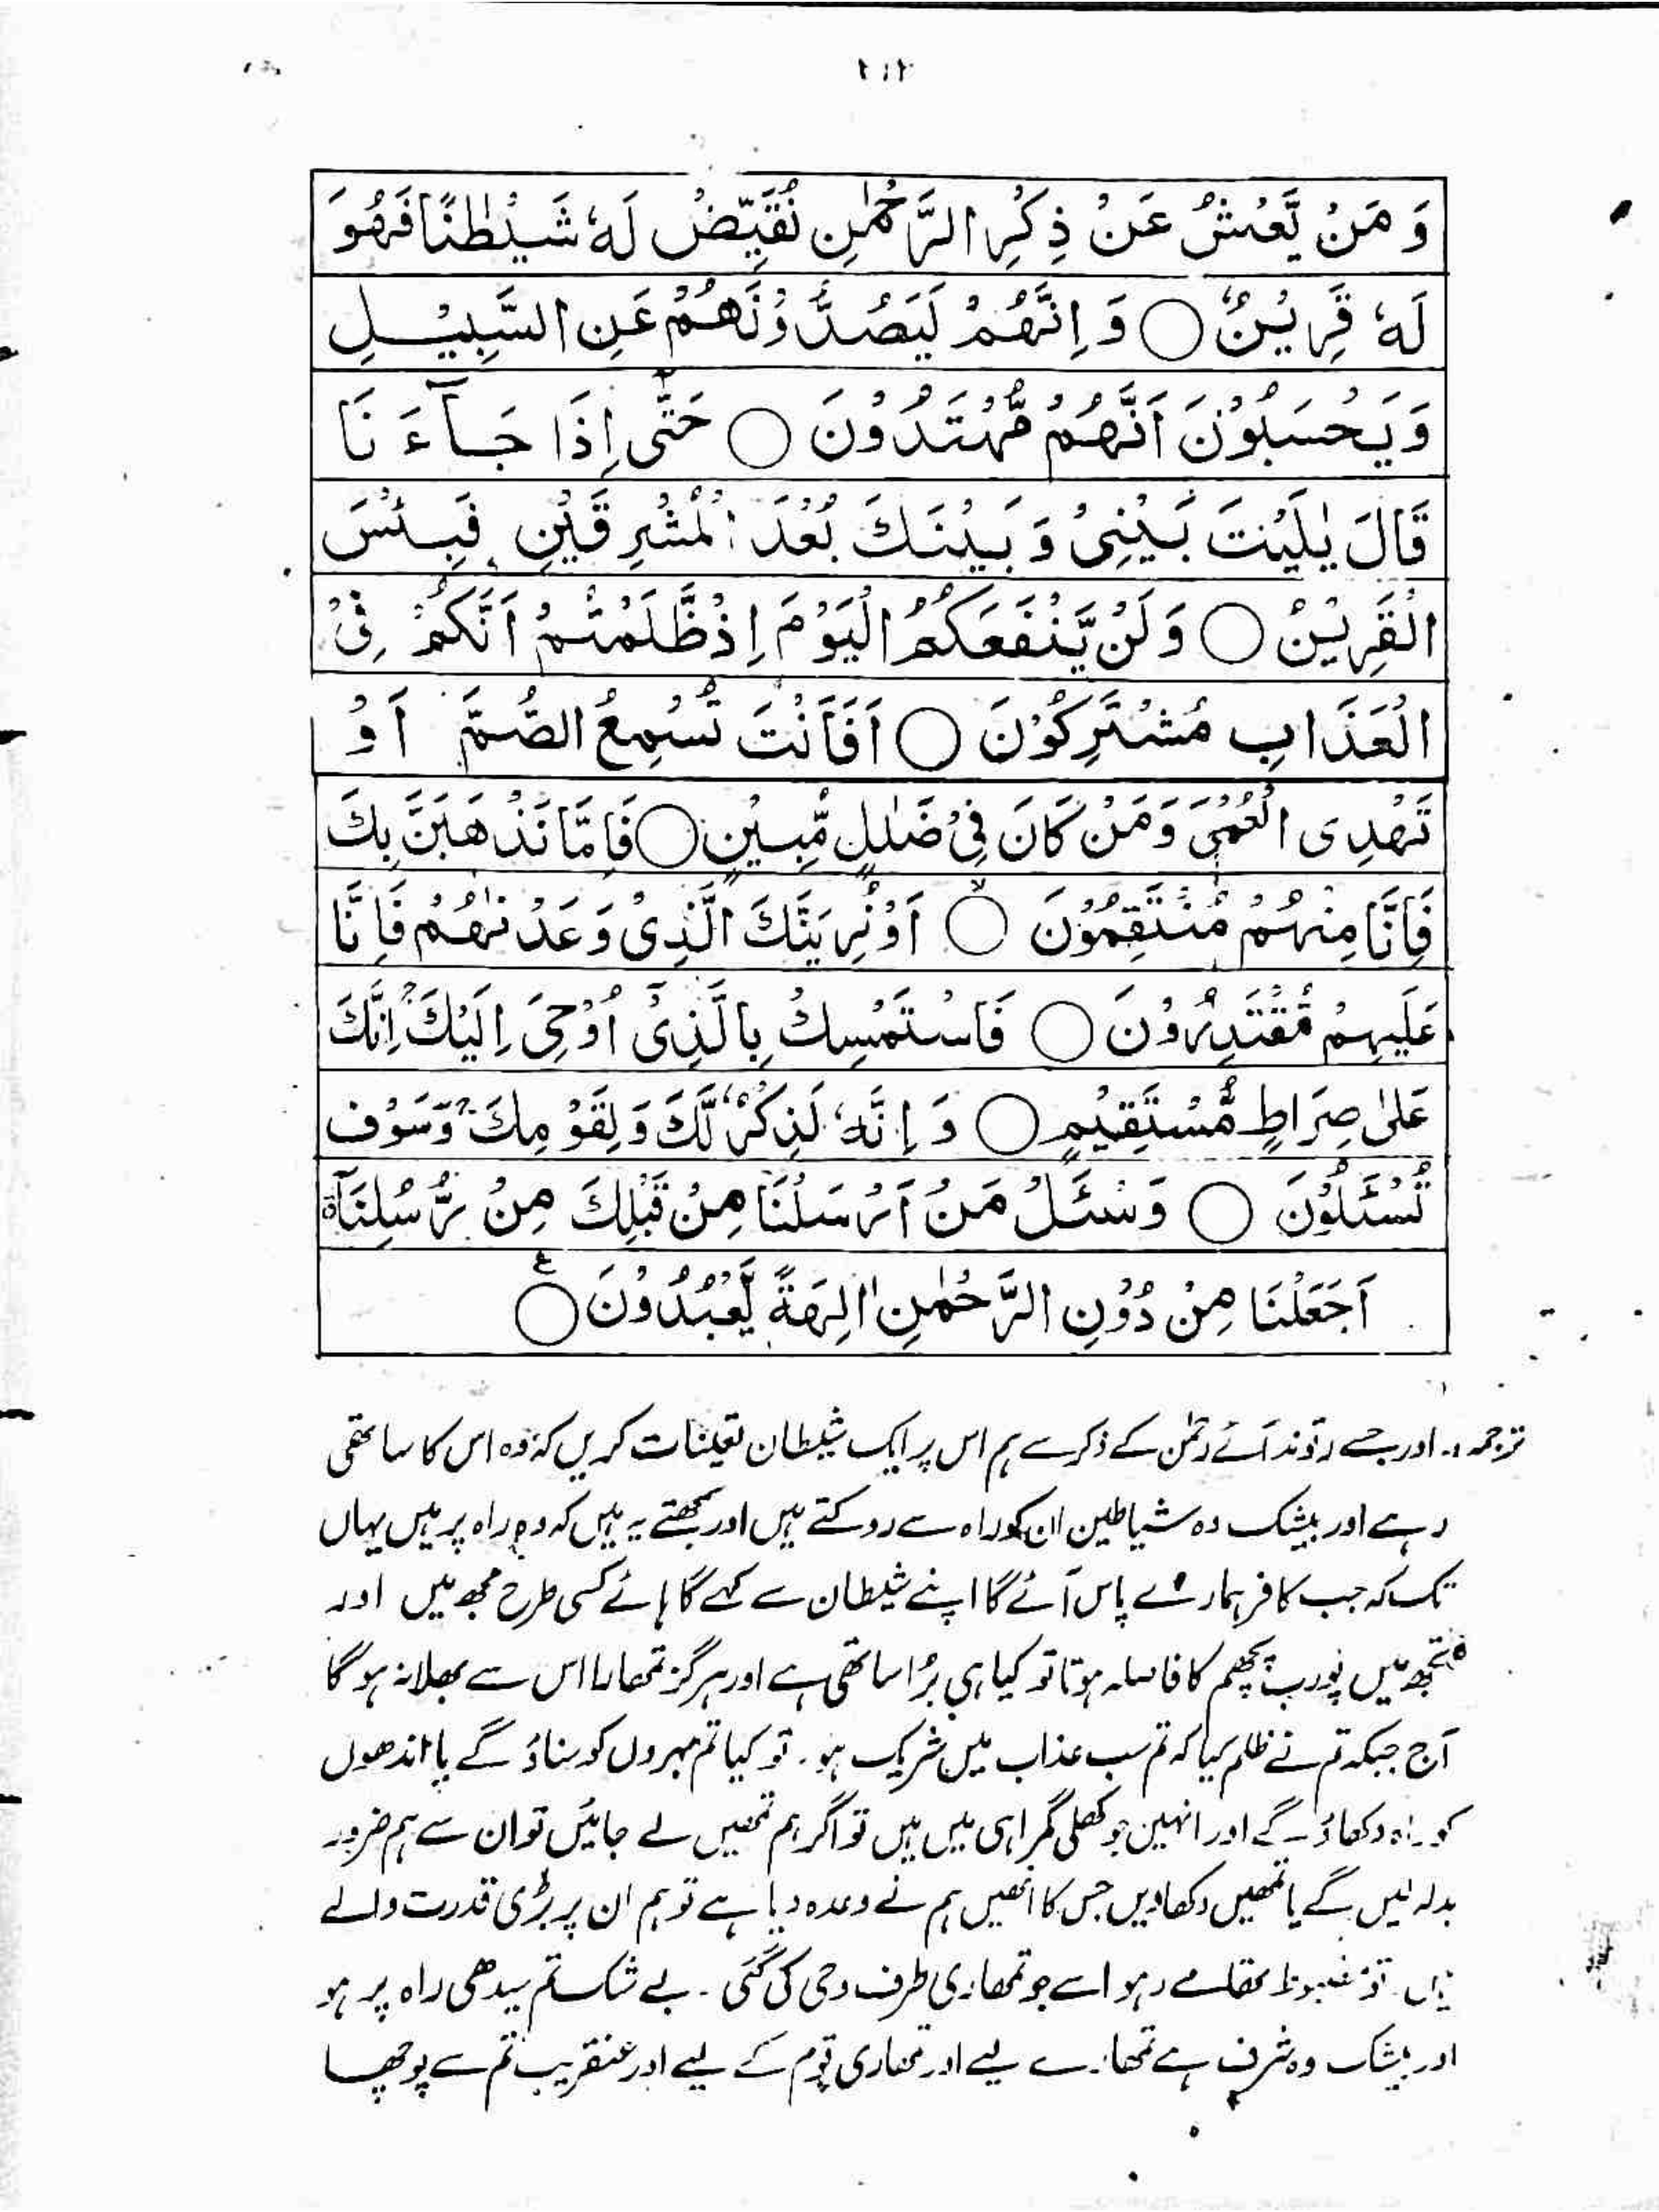 ۲۱۲
وَ مَنْ يَّعْشُ عَنْ ذِكْرِ الرَّحْمٰنِ نُقَيِّضْ لَهٗ شَيْطٰنًا فَهُوَ
لَهٗ قَرِيْنٌ ○ وَ اِنَّهُمْ لَيَصُدُّوْنَهُمْ عَنِ السَّبِيْلِ
وَيَحْسَبُوْنَ اَنَّهُمْ مُّهْتَدُوْنَ ○ حَتّٰى اِذَا جَآءَ نَا
قَالَ يٰلَيْتَ بَيْنِىْ وَ بَيْنَكَ بُعْدَ الْمَشْرِقَيْنِ فَبِئْسَ
الْقَرِيْنُ ○ وَ لَنْ يَّنْفَعَكُمُ الْيَوْمَ اِذْ ظَّلَمْتُمْ اَنَّكُمْ فِىْ
الْعَذَابِ مُشْتَرِكُوْنَ ○ اَفَاَنْتَ تُسْمِعُ الصُّمَّ اَوْ
تَهْدِى الْعُمْىَ وَ مَنْ كَانَ فِىْ ضَلٰلٍ مُّبِيْنٍ ○ فَاِمَّا نَذْهَبَنَّ بِكَ
فَاِنَّا مِنْهُمْ مُّنْتَقِمُوْنَ ○ اَوْ نُرِيَنَّكَ الَّذِىْ وَعَدْنٰهُمْ فَاِنَّا
عَلَيْهِمْ مُّقْتَدِرُوْنَ ○ فَاسْتَمْسِكْ بِالَّذِىْٓ اُوْحِىَ اِلَيْكَ ۚ اِنَّكَ
عَلٰى صِرَاطٍ مُّسْتَقِيْمٍ ○ وَ اِنَّهٗ لَذِكْرٌ لَّكَ وَ لِقَوْمِكَ ۚ وَسَوْفَ
تُسْئَلُوْنَ ○ وَسْئَلْ مَنْ اَرْسَلْنَا مِنْ قَبْلِكَ مِنْ رُّسُلِنَآ
اَجَعَلْنَا مِنْ دُوْنِ الرَّحْمٰنِ اٰلِهَةً يُّعْبَدُوْنَ ○ ع
ترجمہ :۔ اور جسے رتوند آئے رحمٰن کے ذکر سے ہم اس پر ایک شیطان تعینات کریں کہ وہ اس کا ساتھی
رہے اور بیشک وہ شیاطین ان کو راہ سے روکتے ہیں اور سمجھتے یہ ہیں کہ وہ راہ پر ہیں یہاں
تک کہ جب کافر ہمارے پاس آئے گا اپنے شیطان سے کہے گا ہائے کسی طرح مجھ میں اور
تجھ میں پورب پچھم کا فاصلہ ہوتا تو کیا ہی بُرا ساتھی ہے اور ہرگز تمھارا اس سے بھلا نہ ہوگا
آج جبکہ تم نے ظلم کیا کہ تم سب عذاب میں شریک ہو۔ تو کیا تم بہروں کو سناؤ گے یا اندھوں
کو راہ دکھاؤ گے اور انہیں جو کھلی گمراہی میں ہیں تو اگر ہم تمھیں لے جائیں تو ان سے ہم ضرور
بدلہ لیں گے یا تمھیں دکھا دیں جس کا انھیں ہم نے وعدہ دیا ہے تو ہم ان پر بڑی قدرت والے
ہیں تو مضبوط تھامے رہو اسے جو تمھاری طرف وحی کی گئی ۔ بے شک تم سیدھی راہ پر ہو
اور بیشک وہ شرف ہے تمھارے لیے اور تمھاری قوم کے لیے اور عنقریب تم سے پوچھا